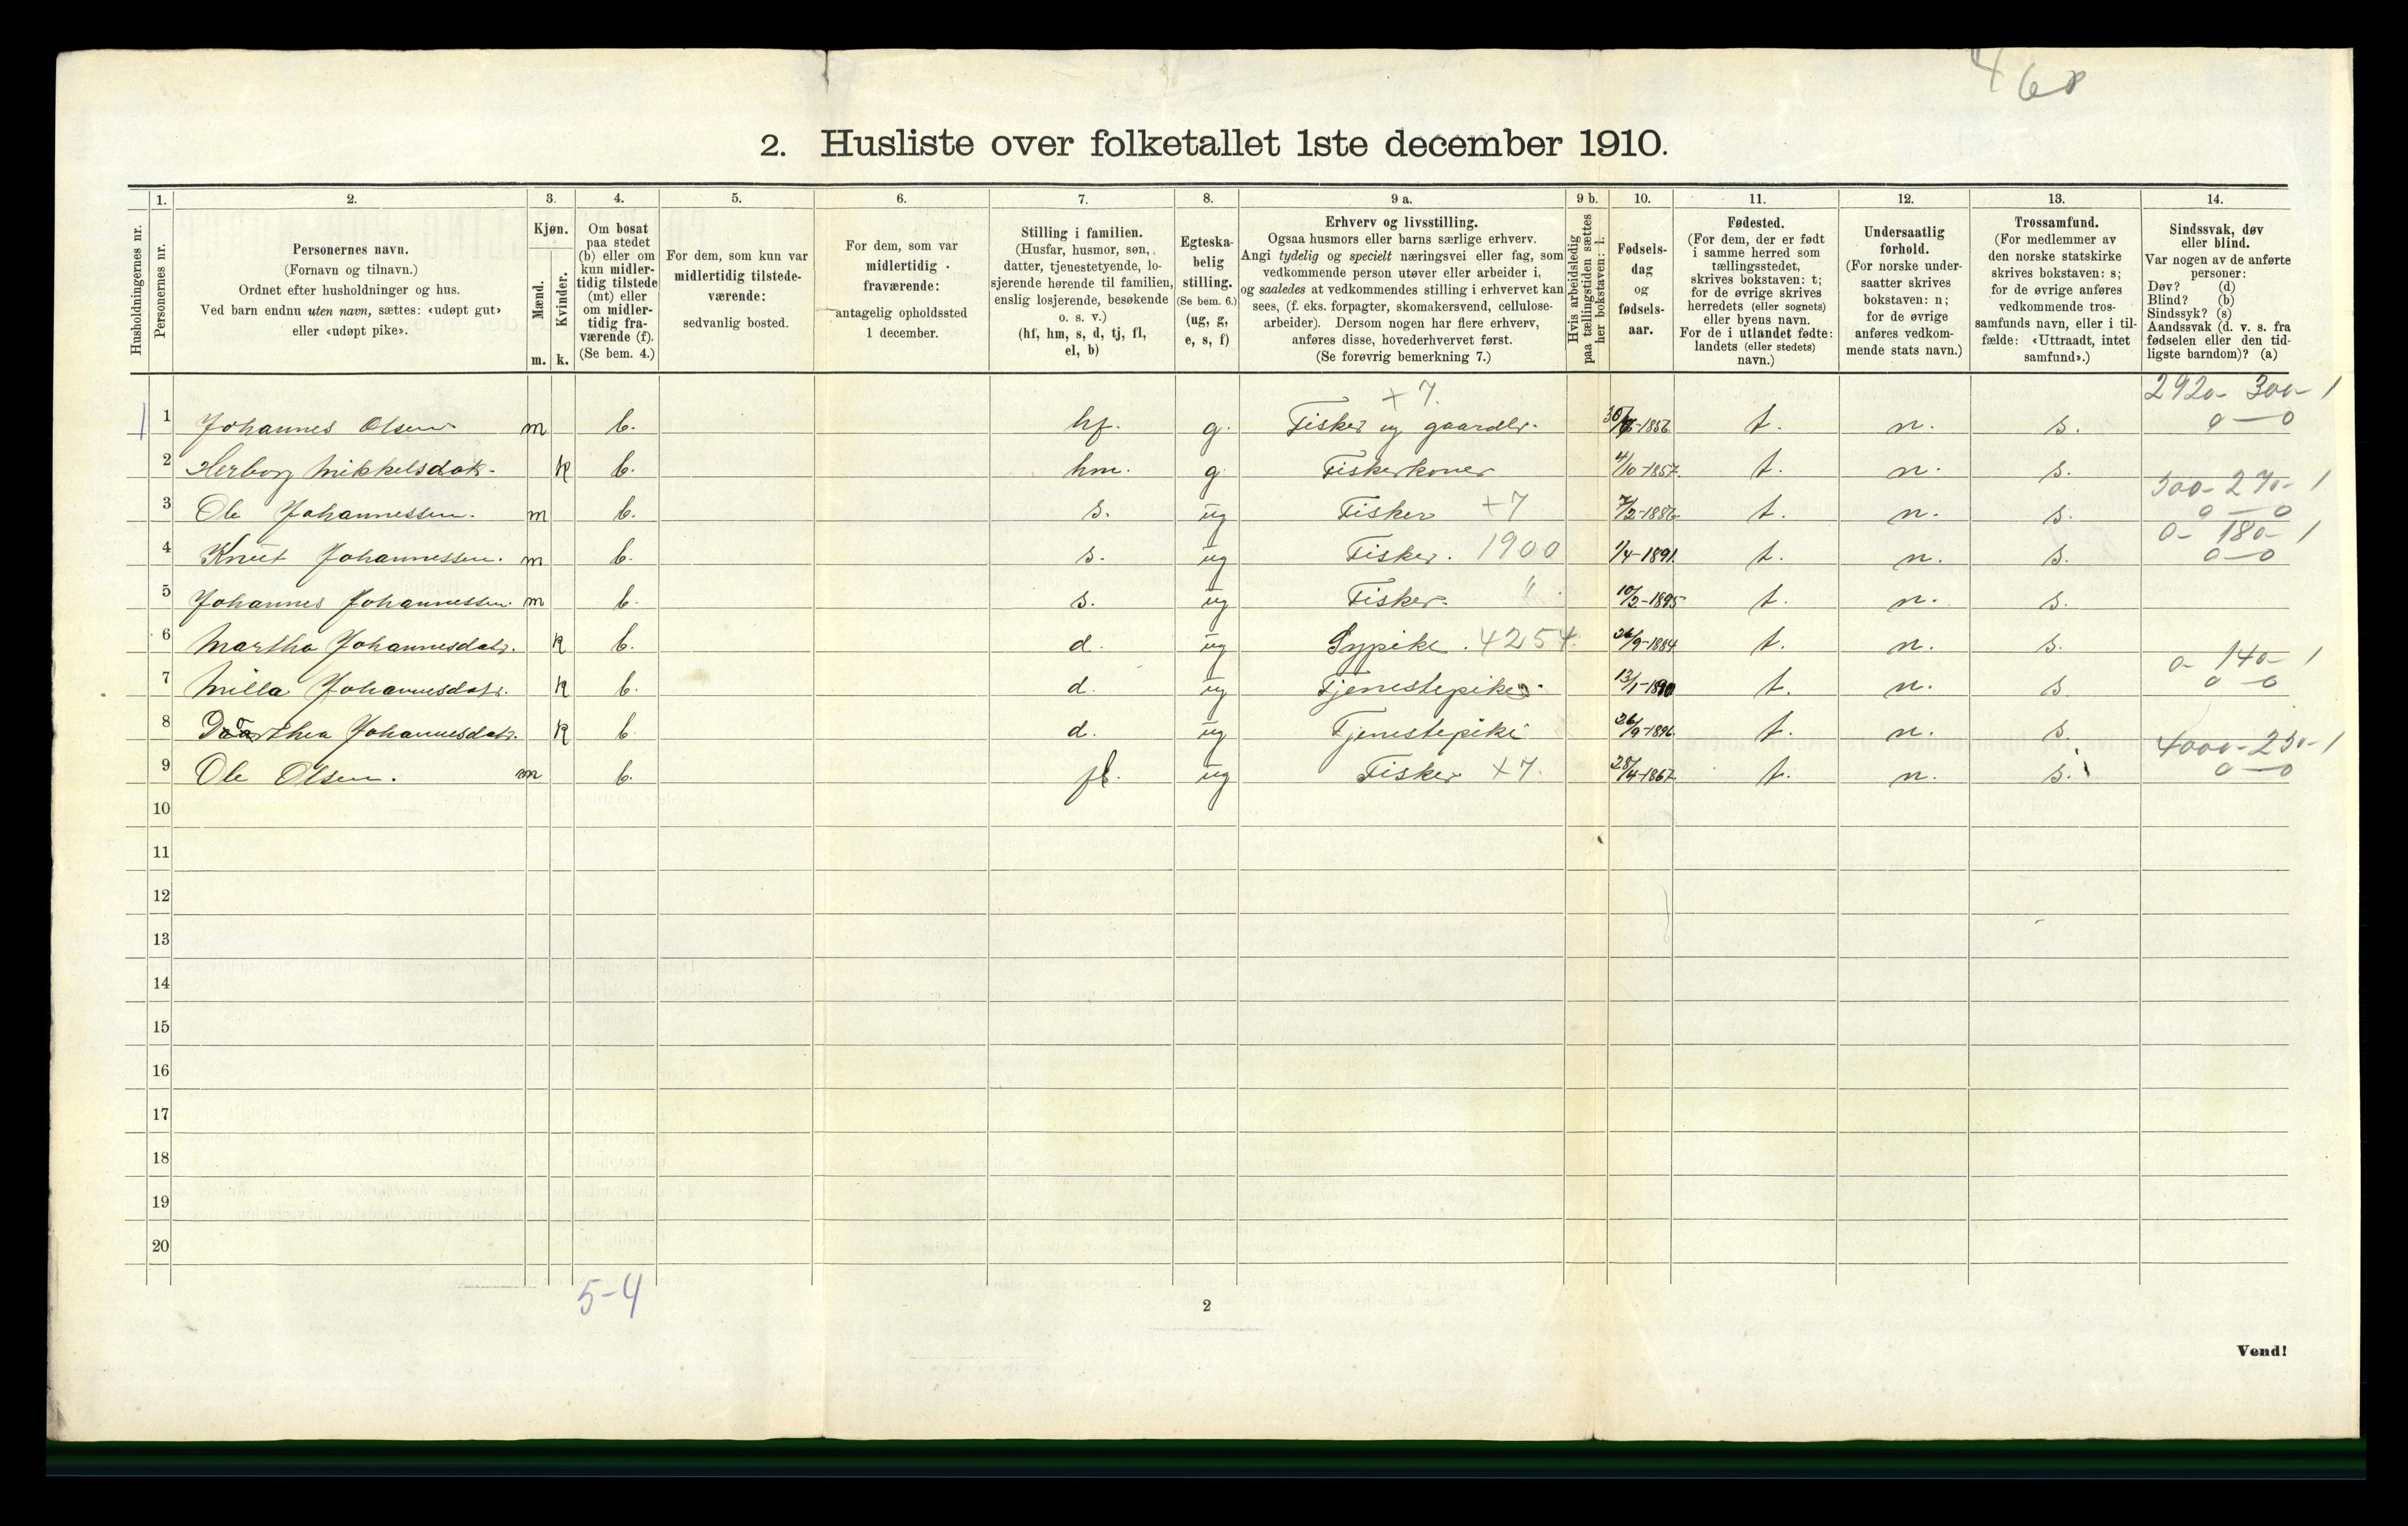 460
2. Husliste over folketallet 1ste december 1910.
Husholdningernes nr.
1.
Personernes nr.
2.
Personernes navn.
(Fornavn og tilnavn.)
Ordnet efter husholdninger og hus.
Ved barn endnu uten navn, sættes: «udøpt gut»
eller «udøpt pike».
3.
Kjøn.
Mænd.
Kvinder.
m. k.
4.
Om bosat
paa stedet
(b) eller om
kun midler-
tidig tilstede
(mt) eller
om midler-
tidig fra-
værende (f).
(Se bem. 4.)
5.
For dem, som kun var
midlertidig tilstede-
værende:
sedvanlig bosted.
6.
For dem, som var
midlertidig
fraværende:
antagelig opholdssted
1 december.
7.
Stilling i familien.
(Husfar, husmor, søn,
datter, tjenestetyende, lo-
sjerende hørende til familien,
enslig losjerende, besøkende
o. s. v.)
(hf, hm, s, d, tj, fl,
el, b)
8.
Egteska-
belig
stilling.
(Se bem. 6.)
(ug, g,
e, s, f)
9 a.
Erhverv og livsstilling.
Ogsaa husmors eller barns særlige erhverv.
Angi tydelig og specielt næringsvei eller fag, som
vedkommende person utøver eller arbeider i,
og saaledes at vedkommendes stilling i erhvervet kan
sees, (f. eks. forpagter, skomakersvend, cellulose-
arbeider). Dersom nogen har flere erhverv,
anføres disse, hovederhvervet først.
(Se forøvrig bemerkning 7.)
9 b.
Hvis arbeidsledig
paa tællingstiden sættes
her bokstaven: l.
10.
Fødsels-
dag
og
fødsels-
aar.
11.
Fødested.
(For dem, der er født
i samme herred som
tællingsstedet,
skrives bokstaven: t;
for de øvrige skrives
herredets (eller sognets)
eller byens navn.
For de i utlandet fødte:
landets (eller stedets)
navn.)
12.
Undersaatlig
forhold.
(For norske under-
saatter skrives
bokstaven: n;
for de øvrige
anføres vedkom-
mende stats navn.)
13.
Trossamfund.
(For medlemmer av
den norske statskirke
skrives bokstaven: s;
for de øvrige anføres
vedkommende tros-
samfunds navn, eller i til-
fælde: «Uttraadt, intet
samfund».)
14.
Sindssvak, døv
eller blind.
Var nogen av de anførte
personer:
Døv? (d)
Blind? (b)
Sindssyk? (s)
Aandssvak (d. v. s. fra
fødselen eller den tid-
ligste barndom)? (a)
+7. 2920- 300- 1
1 1 Johannes Olsen m b. hf. g. Fisker og gaardbr. -1856 t. n. s. 0-0
2 Herborg Mikkelsdatr. k b. hm. g. Fiskerkone 4/10-1857 t. n. s.
300-270-1
3 Ole Johannessen. m b. s. ug Fisker +7 7/2-1886 t. n. s. 0-0
0-180-1
4 Knut Johannessen. m b. s. ug Fisker. 1900 1/4-1891. t. n. s. 0-0
5 Johannes Johannessen. m b. s. ug Fisker. " 10/2-1895 t. n. s.
6 Martha Johannesdatr. k b. d. ug Sypike. 4254. 26/9-1884 t. n. s.
0-140-1
7 Milla Johannesdatr. k b. d. ug Tjenestepike. 13/1-1890 t. n. s. 0-0
8 Dorthea Johannesdatr. k b. d. ug Tjenestepike 26/9-1896 t. n. s.
4000-250-1
9 Ole Olsen. m b. fl. ug Fisker +7. 28/4-1867 t. n. s. 0-0
10
11
12
13
14
15
16
17
18
19
20
5-4
2
Vend!